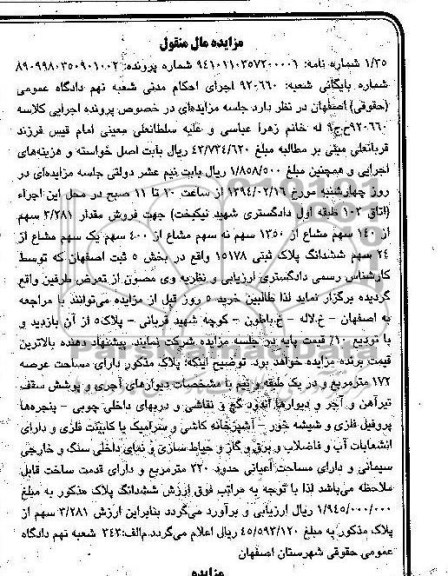 مزایده مال منقول
۱/۳۵ شماره نامه: ۹۴۱۰۱۱۰۳۵۷۲۰۰۰۰۱ شماره پرونده: ۸۹۰۹۹۸۰۳۵۰۹۰۱۰۰۲
شماره بایگانی شعبه: ۹۲۰۶۶۰ اجرای احکام مدنی شعبه نهم دادگاه عمومی
(حقوقی) اصفهان در نظر دارد جلسه مزایده‌ای در خصوص پرونده اجرایی کلاسه
۹۲۰۶۶۰ح‌ج۹ له خانم زهرا عباسی و علیه سلطانعلی معینی امام قیس فرزند
قربانعلی مبنی بر مطالبه مبلغ ۴۲/۷۳۴/۶۲۰ ریال بابت اصل خواسته و هزینه‌های
اجرایی و همچنین مبلغ ۱/۸۵۸/۵۰۰ ریال بابت نیم عشر دولتی جلسه مزایده‌ای در
روز چهارشنبه مورخ ۱۳۹۴/۰۲/۱۶ از ساعت ۱۰ تا ۱۱ صبح در محل این اجراء
(اتاق ۱۰۲ طبقه اول دادگستری شهید نیکبخت) جهت فروش مقدار ۳/۲۸۱ سهم
از ۱۴۰ سهم مشاع از ۱۳۵۰ سهم نه سهم مشاع از ۴۰۰ سهم یک سهم مشاع از
۲۴ سهم ششدانگ پلاک ثبتی ۱۵۱۷۸ واقع در بخش ۵ ثبت اصفهان که توسط
کارشناس رسمی دادگستری ارزیابی و نظریه وی مصون از تعرض طرفین واقع
گردیده برگزار نماید لذا طالبین خرید ۵ روز قبل از مزایده می‌توانند با مراجعه
به اصفهان – خ.لاله – خ.باطون – کوچه شهید قربانی – پلاک۵ از آن بازدید و
با تودیع ۱۰٪ قیمت پایه در جلسه مزایده شرکت نمایند. پیشنهاد دهنده بالاترین
قیمت برنده مزایده خواهد بود. توضیح اینکه: پلاک مذکور دارای مساحت عرصه
۱۷۲ مترمربع و در یک طبقه و نیم با مشخصات دیوارهای آجری و پوشش سقف
تیرآهن و آجر و دیوارها اندود گچ و نقاشی و دربهای داخلی چوبی – پنجره‌ها
پروفیل فلزی و شیشه خور – آشپزخانه کاشی و سرامیک با کابینت فلزی و دارای
انشعابات آب و فاضلاب و برق و گاز و حیاط سازی و نمای داخلی سنگ و خارجی
سیمانی و دارای مساحت اعیانی حدود ۲۲۰ مترمربع و دارای قدمت ساخت قابل
ملاحظه می‌باشد لذا با توجه به مراتب فوق ارزش ششدانگ پلاک مذکور به مبلغ
۱/۹۴۵/۰۰۰/۰۰۰ ریال ارزیابی و برآورد می‌گردد بنابراین ارزش ۳/۲۸۱ سهم از
پلاک مذکور به مبلغ ۴۵/۵۹۳/۱۲۰ ریال اعلام می‌گردد.م‌الف:۳۴۳ شعبه نهم دادگاه
عمومی حقوقی شهرستان اصفهان
مزایده